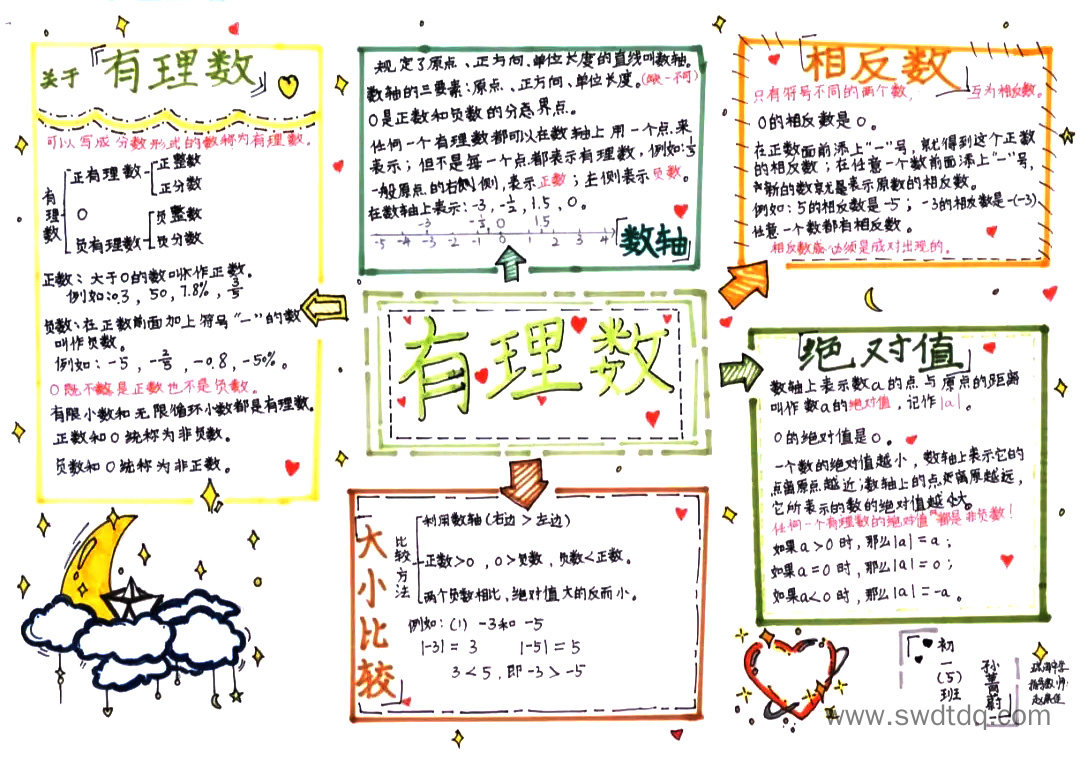 关于「有理数」
可以写成分数形式的数称为有理数。
有理数
正有理数
正整数
正分数
0
负有理数
负整数
负分数
正数：大于0的数叫作正数。
例如：0.3，50，7.8%，3/5
负数：在正数前面加上符号“-”的数
叫作负数。
例如：-5，-2/3，-0.8，-50%。
0既不是正数也不是负数。
有限小数和无限循环小数都是有理数。
正数和0统称为非负数。
负数和0统称为非正数。
规定了原点、正方向、单位长度的直线叫数轴。
数轴的三要素：原点、正方向、单位长度。(缺一不可)
0是正数和负数的分界点。
任何一个有理数都可以在数轴上用一个点来
表示；但不是每一个点都表示有理数，例如：
一般原点的右侧，表示正数；左侧表示负数。
在数轴上表示：-3，-1/2，1.5，0。
-3 -1/2 0 1.5
-5 -4 -3 -2 -1 0 1 2 3 4
「数轴」
有理数
大小比较
比较方法
利用数轴(右边＞左边)
正数＞0，0＞负数，负数＜正数。
两个负数相比，绝对值大的反而小。
例如：(1) -3和-5
|-3|=3 |-5|=5
3＜5，即-3＞-5
「相反数」
只有符号不同的两个数，互为相反数。
0的相反数是0。
在正数面前添上“-”号，就得到这个正数
的相反数；在任意一个数前面添上“-”号，
新的数就是表示原数的相反数。
例如：5的相反数是-5；-3的相反数是-(-3)
任意一个数都有相反数。
相反数必须是成对出现的。
「绝对值」
数轴上表示数a的点与原点的距离
叫作数a的绝对值，记作|a|。
0的绝对值是0。
一个数的绝对值越小，数轴上表示它的
点离原点越近；数轴上的点距离原越远，
它所表示的数的绝对值越大。
任何一个有理数的绝对值都是非负数！
如果a＞0时，那么|a|=a；
如果a=0时，那么|a|=0；
如果a＜0时，那么|a|=-a。
初一(5)班
指导教师：
www.swdtdq.com